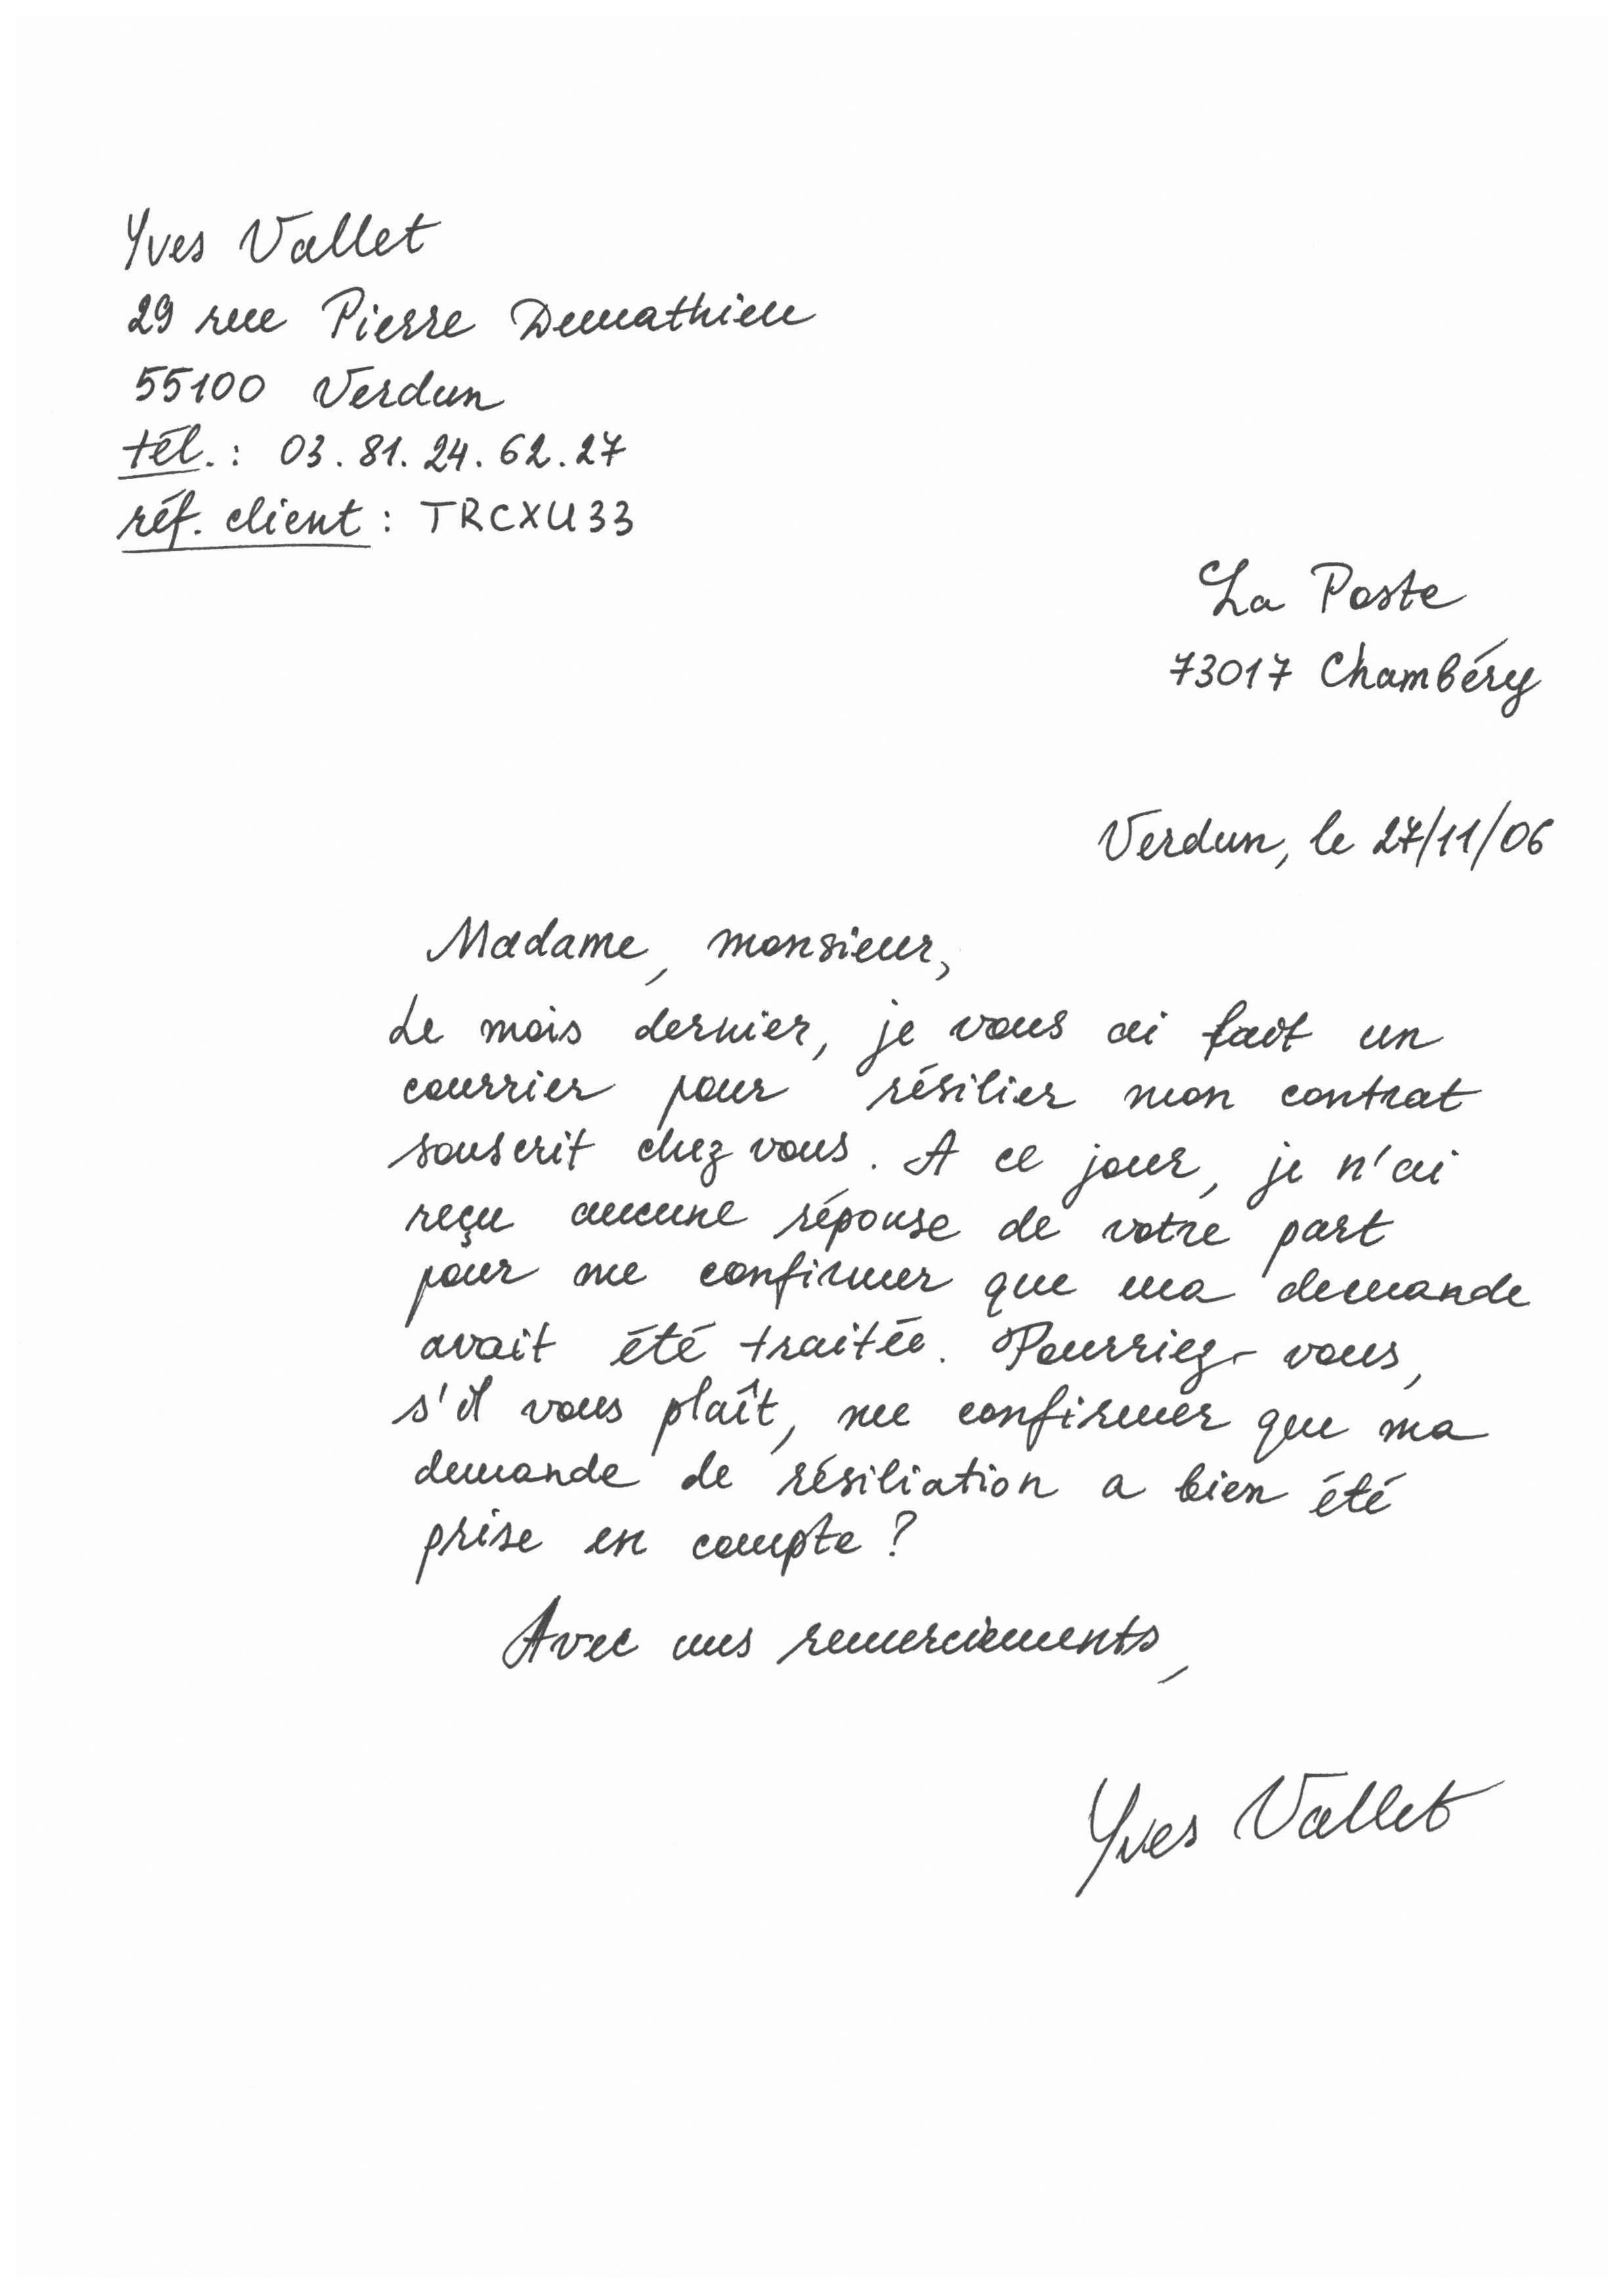 Yves Vallet
29 rue Pierre Demathieu
55100 Verdun
tél. : 03.81.24.62.27
réf. client : TRCXU33
La Poste
73017 Chambéry
Verdun, le 27/11/06
Madame, monsieur,
Le mois dernier, je vous ai fait un
courrier pour résilier mon contrat
souscrit chez vous. A ce jour, je n'ai
reçu aucune réponse de votre part
pour me confirmer que ma demande
avait été traitée. Pourriez-vous,
s'il vous plaît, me confirmer que ma
demande de résiliation a bien été
prise en compte ?
Avec mes remerciements,
Yves Vallet